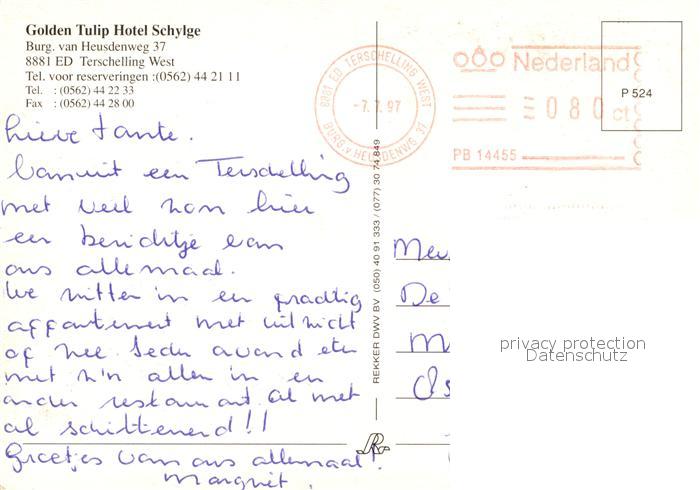 Golden Tulip Hotel Schylge
Burg. van Heusdenweg 37
8881 ED Terschelling West
Tel. voor reserveringen :(0562) 44 21 11
Tel. : (0562) 44 22 33
Fax : (0562) 44 28 00
lieve tante.
Vanuit een Terschelling
met veel zon hier
een berichtje van
ons allemaal.
We zitten in een prachtig
appartement met uitzicht
op zee. Ieder avond eten
met z'n allen in een
ander restaurant. Al met
al schitterend!!
Groetjes van ons allemaal!
Margriet.
8881 ED TERSCHELLING WEST
-7.7.97
BURG. v. HEUSDENWG 37
Nederland
080 ct
PB 14455
P 524
REKKER DWV BV (050) 40 91 333 / (077) 30 74 849
Mev
De
M
Os
privacy protection
Datenschutz